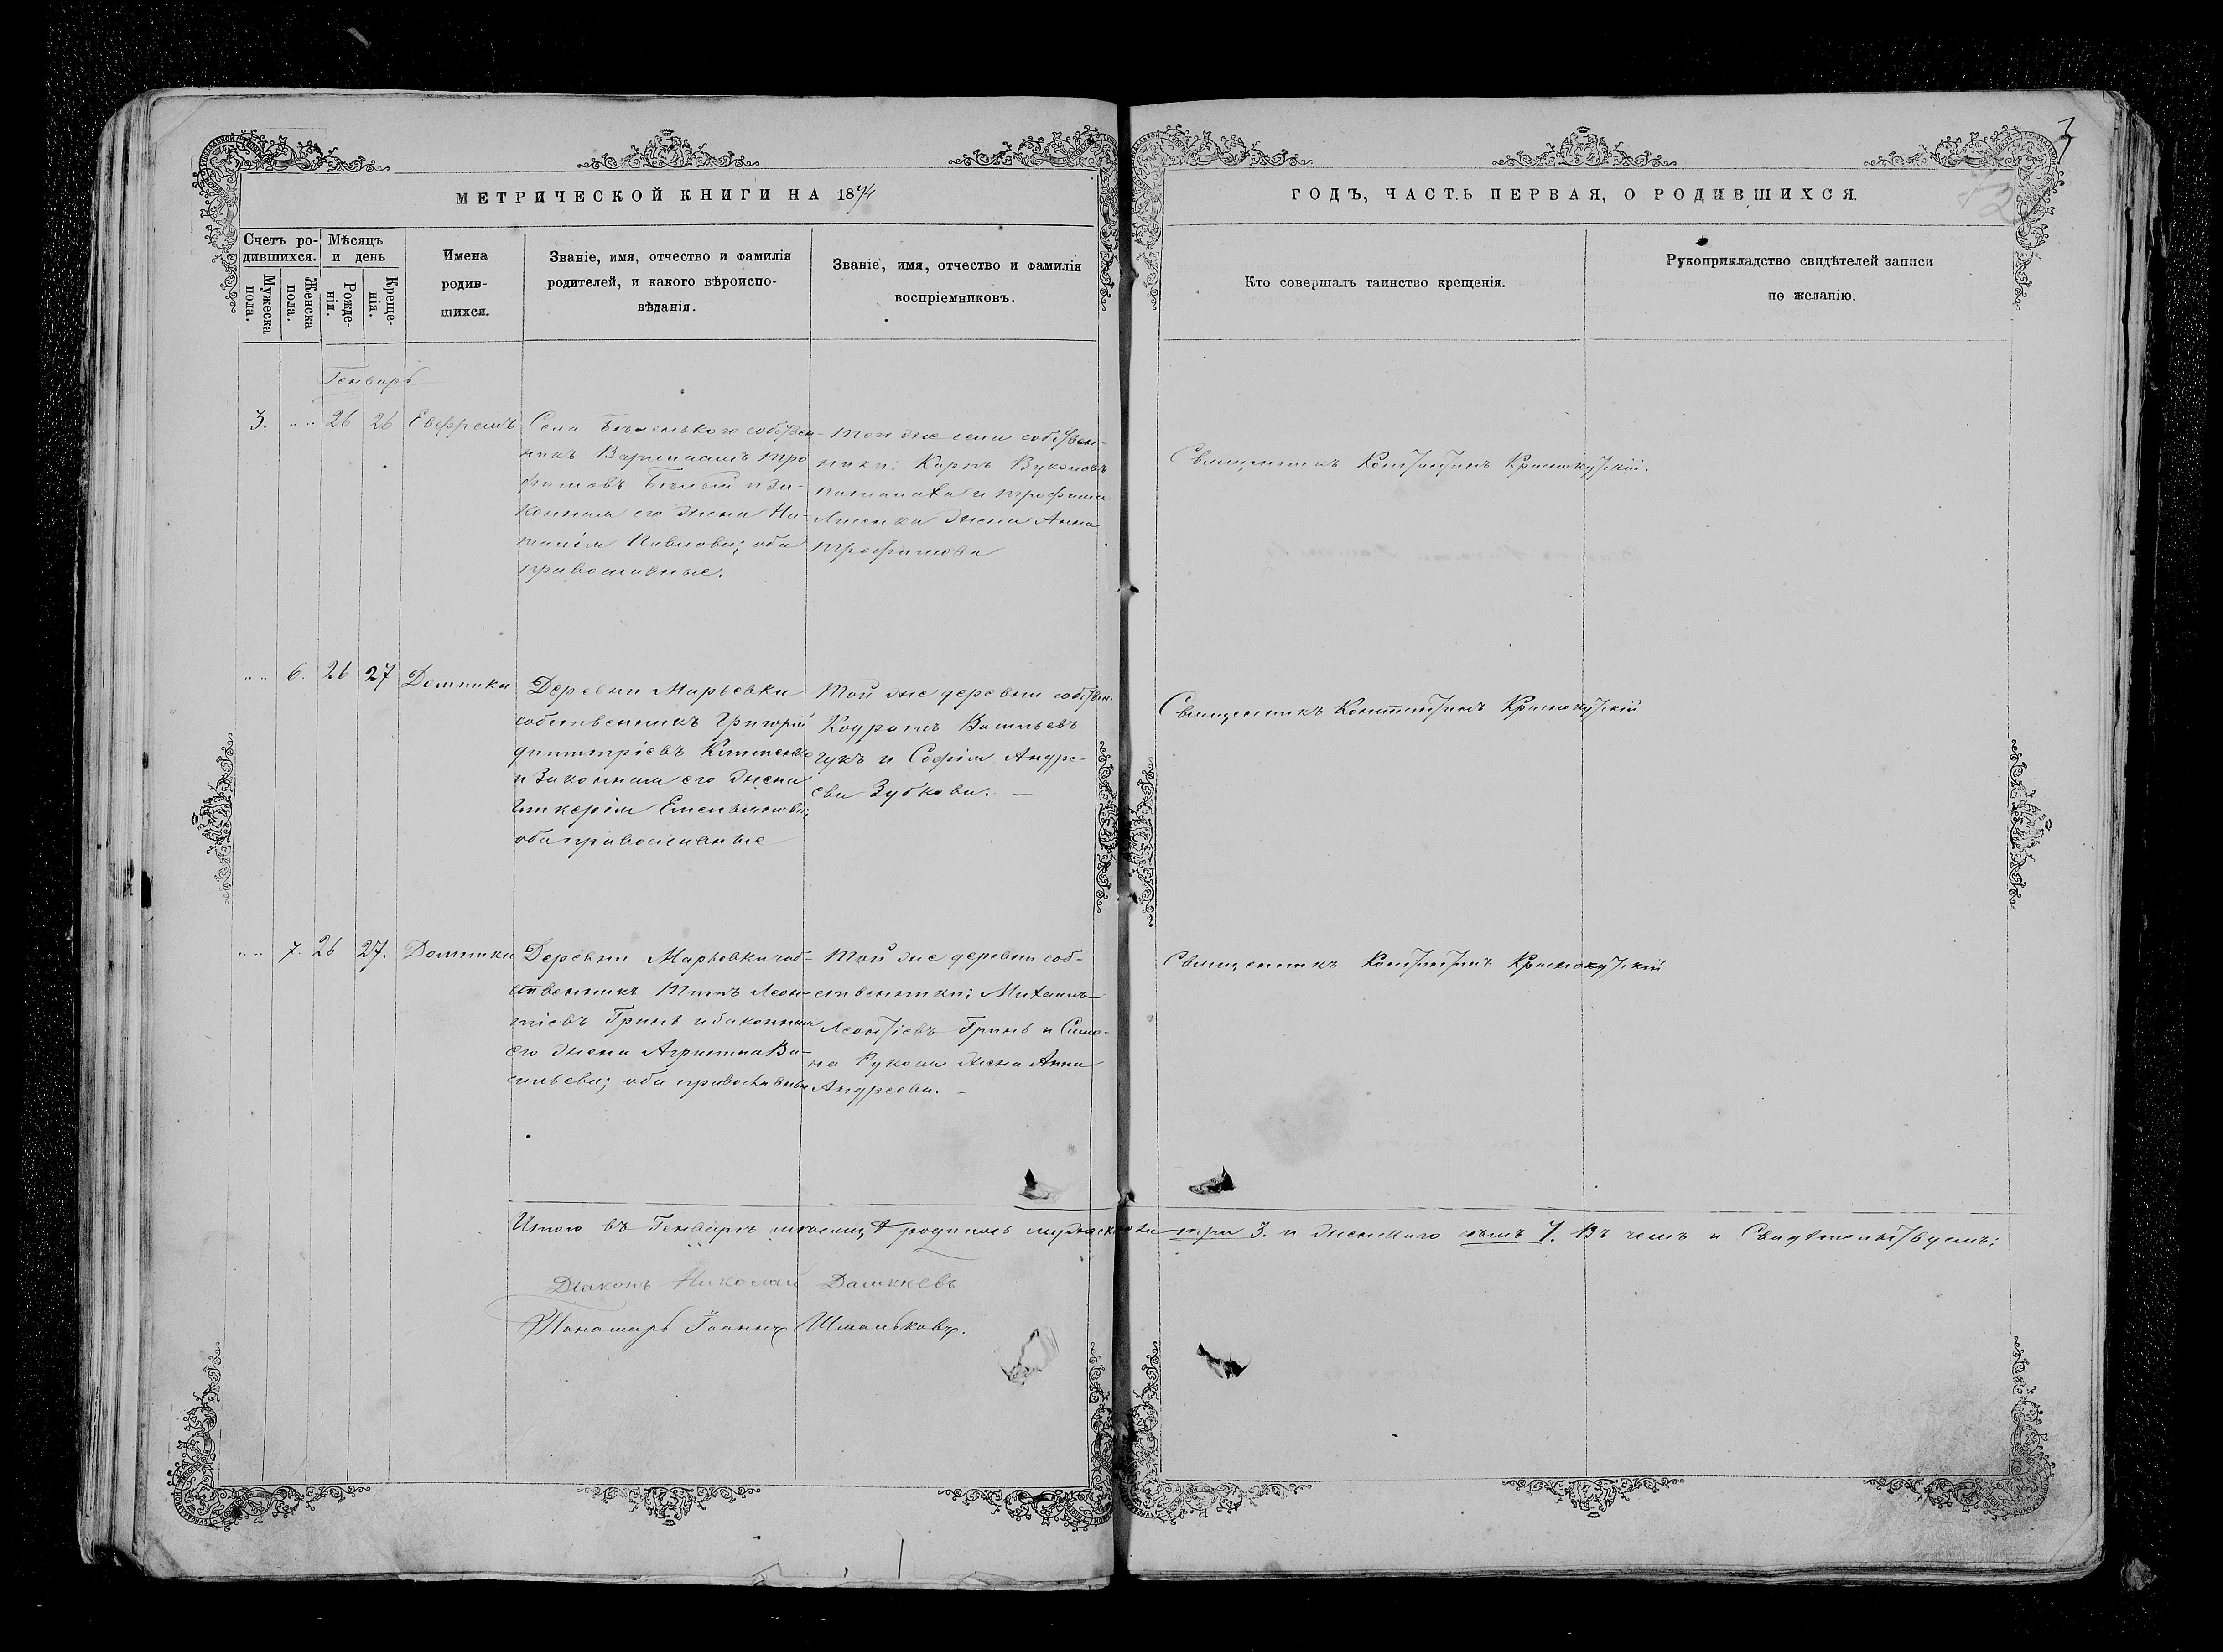 3
МЕТРИЧЕСКОЙ КНИГИ НА 1874
ГОДЪ, ЧАСТЬ ПЕРВАЯ, О РОДИВШИХСЯ.
Счетъ ро-
дившихся.
Мужеска
пола.
Женска
пола.
Мѣсяцъ
и день
Рожде-
нія.
Креще-
нія.
Имена
родив-
шихся.
Званіе, имя, отчество и фамилія
родителей, и какого вѣроиспо-
вѣданія.
Званіе, имя, отчество и фамилія
воспріемниковъ.
Кто совершалъ таинство крещенія.
Рукоприкладство свидѣтелей записи
по желанію.
Генварь
3. 26 26 Евфремъ
Села собствен-
никъ Варлаамъ Тро
фимовъ Бѣлый и за-
конная его жена На-
талія Павлова; оба
православные.
Того же села собствен-
ники: Карпъ
и Трофима
жена Анна
Трофимова
Священникъ Константинъ Краснокутскій.
6. 26 27 Домника
Деревни Марьевки
собственникъ Григорій
Димитріевъ
и законная его жена
Гликерія Емельянова;
оба православные
Той же деревни собствен.
Кодратъ Васильевъ
и Софія Андре-
ева Зубкова. —
Священникъ Константинъ Краснокутскій
7. 26 27. Домника
Деревни Марьевки соб-
ственникъ Титъ Леон-
тіевъ Гринь и законная
его жена Агрипина Ва-
сильева; оба православные
Той же деревни соб-
ственники; Михаилъ
Леонтіевъ Гринь и Симо-
на жена Анна
Андреева. —
Священникъ Константинъ Краснокутскій
Итого въ Генварѣ мѣсяцѣ родилось мужеска пола три 3. и женскаго семь 7. Въ чемъ и Свидѣтельствуемъ:
Діаконъ Николай Дашкѣевъ
Понамарь Іоаннъ Шмальковъ.